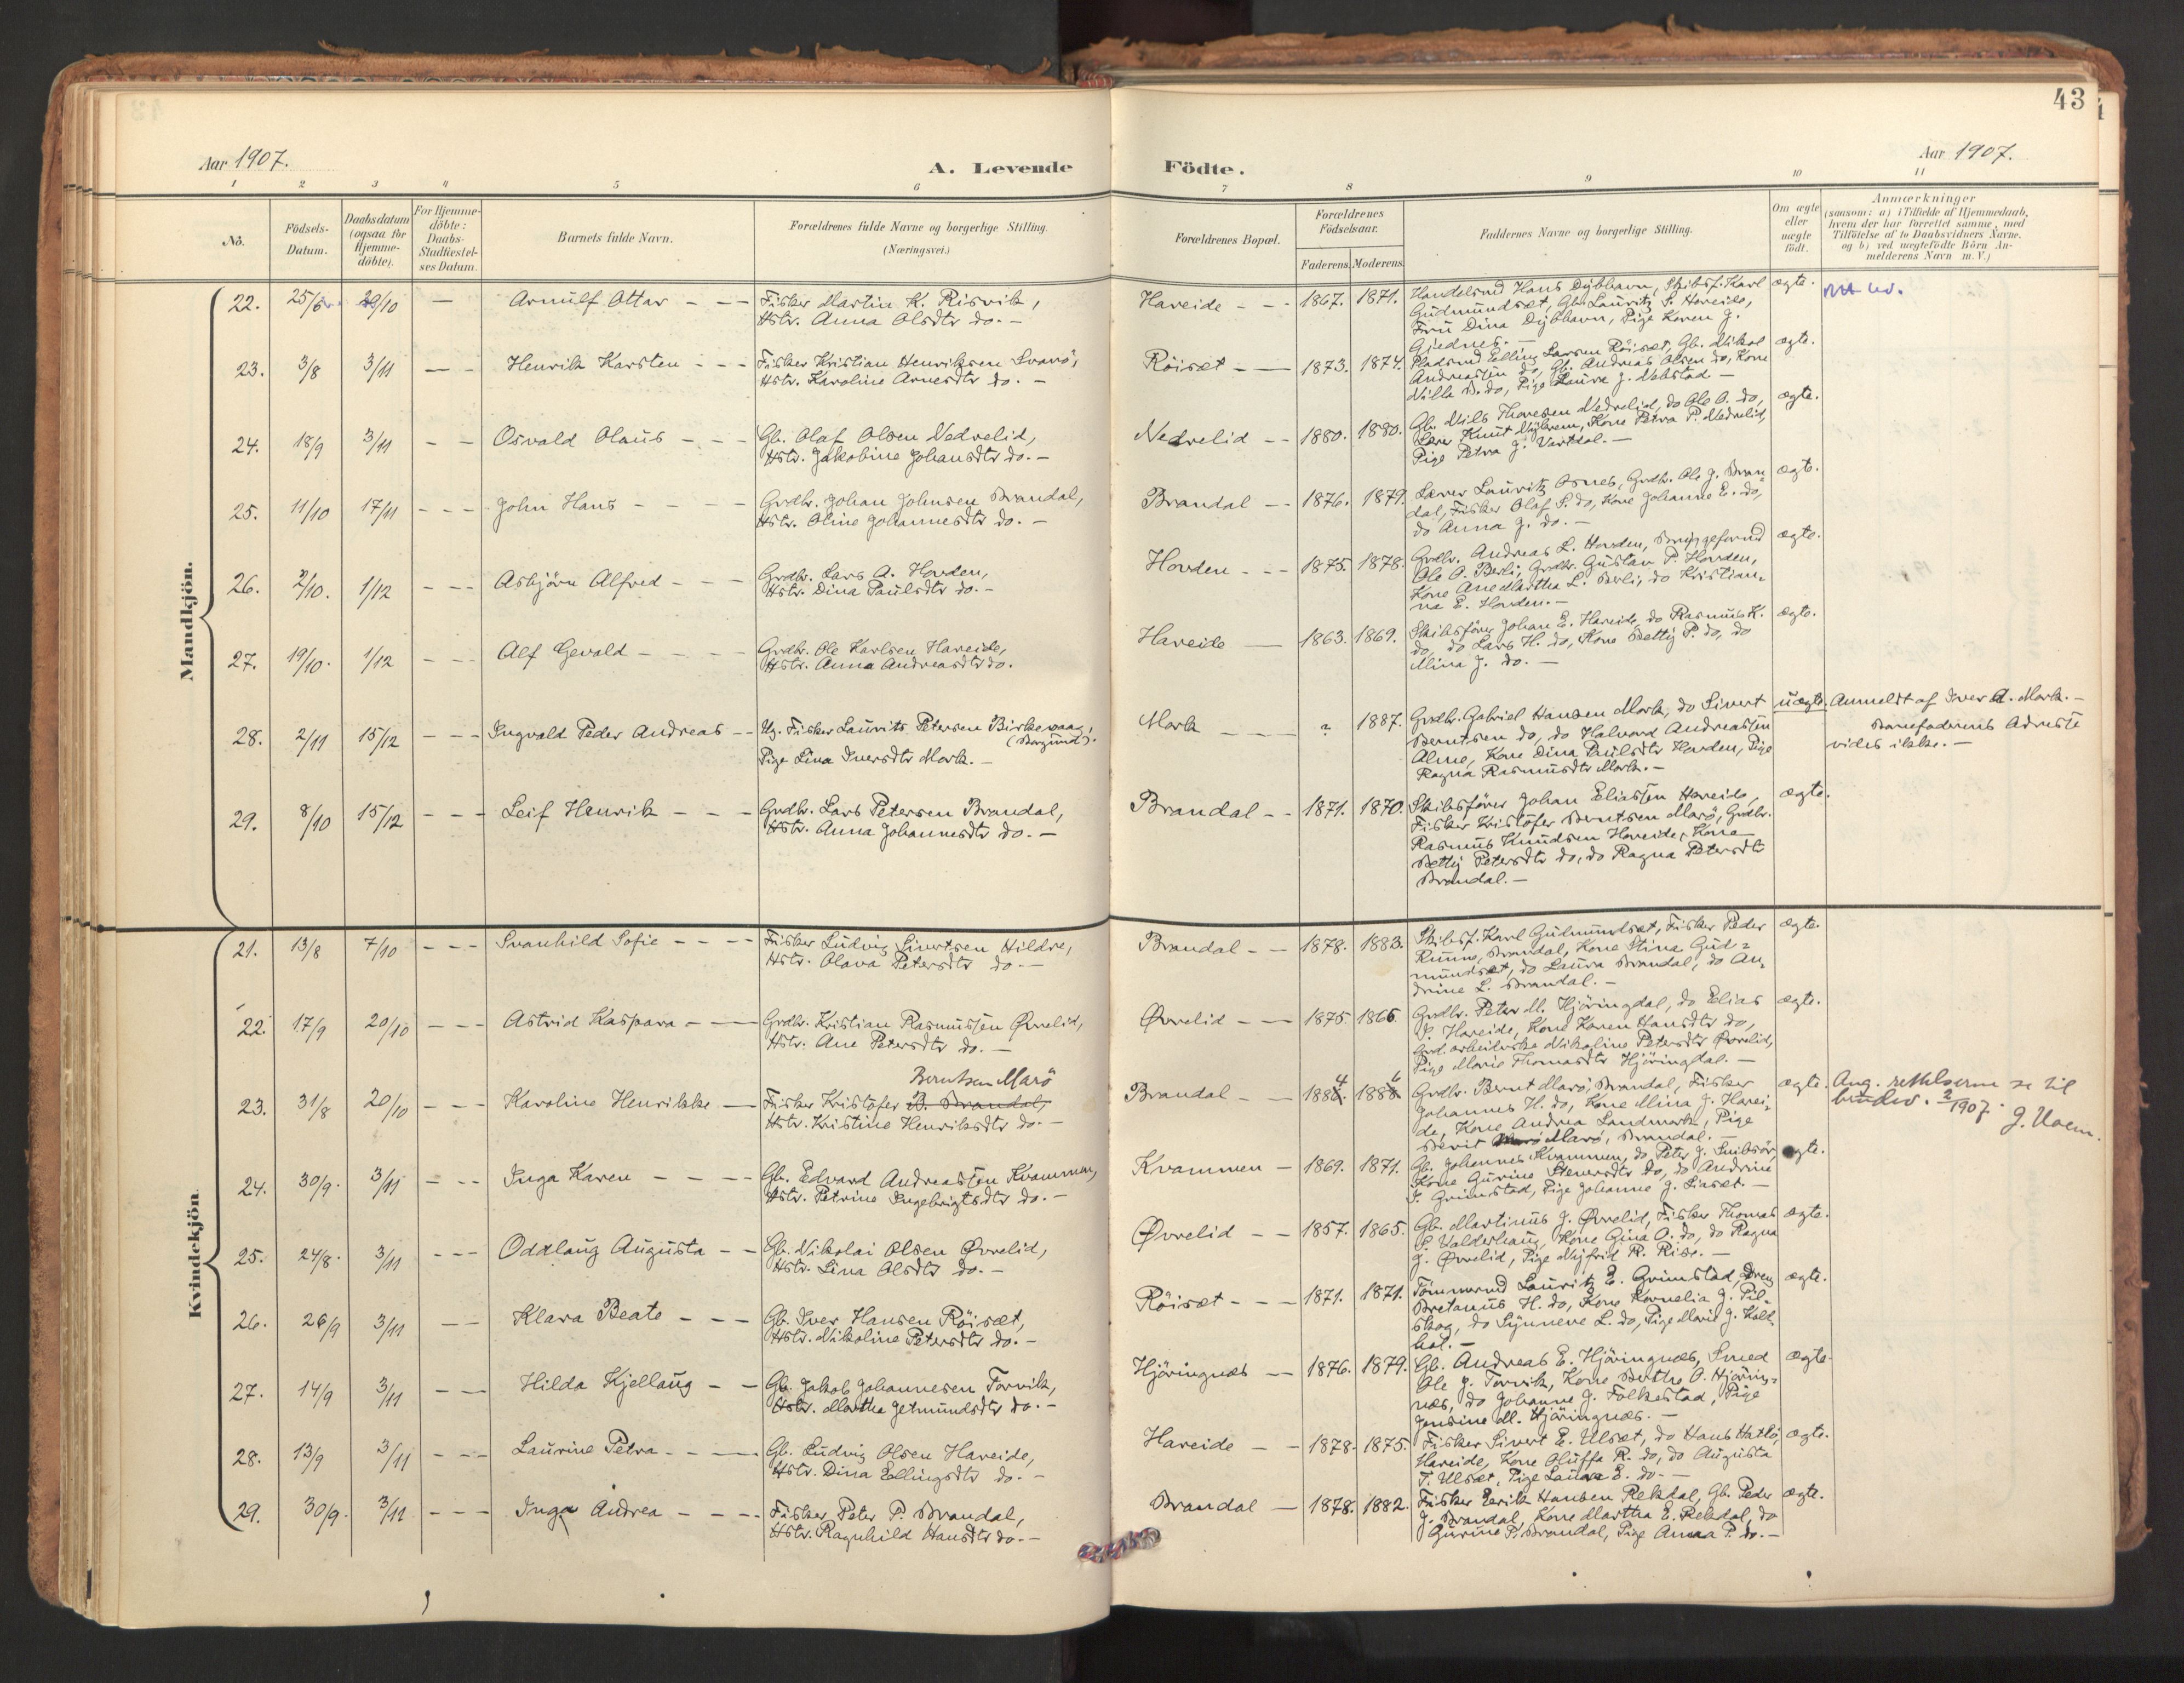 43
Aar 1907.
A. Levende Födte.
Aar 1907.
1 2 3 4 5 6 7 8 9 10 11
No.
Födsels-Datum.
Daabsdatum (ogsaa for Hjemme-döbte).
For Hjemme-döbte: Daabs-Stadfæstel-ses Datum.
Barnets fulde Navn.
Forældrenes fulde Navne og borgerlige Stilling. (Næringsvei.)
Forældrenes Bopæl.
Forældrenes Födselsaar.
Faderens. Moderens.
Faddernes Navne og borgerlige Stilling.
Om ægte eller uægte födt.
Anmærkninger
(saasom: a) i Tilfælde af Hjemmedaab,
hvem der har forrettet samme, med
Tilföielse af to Daabsvidners Navne,
og b) ved uegtefödte Börn An-
melderens Navn m. V.)
Mandkjön.
22. 25/6 29/10 — Arnulf Ottar - - - Fisker Martin K. Risvik,
Hstr. Anna Olsdtr do. -
Hareide - - - 1867. 1871. Handelsmd Hans Dybhavn, Skibsf. Karl
Gudmundsæt, Gb. Lauritz S. Hareide,
Frü Dina Dybhavn, Pige Karen J.
Gjednes. -
ægte.
23. 3/8 3/11 — - Henrik Karsten - - - Fisker Kristian Henriksen Svarö,
Hstr. Karoline Arnesdtr do. -
Röisæt - — 1873. 1874. Pladsmd Elling Larsen Röisæt, Gb. Nikol
Andreassen do, Gb. Andreas Olsen do, Kone
Nille B. do, Pige Laura J. Nebstad -
ægte.
24. 18/9 3/11 - - Osvald Olaus - - - Gb. Olaf Olsen Nedrelid,
Hstr. Jakobine Johansdtr do. -
Nedrelid - - 1880. 1880. Gb. Nils Thoresen Nedrelid, do Ole O. do,
Lærer Knut Myhrem, Kone Petra P. Nedrelid,
Pige Petra J. Vartdal. -
ægte.
25. 11/10 17/11 - - - John Hans - - - - Grdbr. Johan Johnsen Brandal,
Hstr. Oline Johannesdtr do. -
Brandal - - 1876. 1879. Lærer Lauritz Osnes, Grdbr. Ole J. Bran-
dal, Fisker Olaf S. do, Kone Johanne E. do,
do Anna J. do. -
ægte.
26. 2/10. 1/12 - - - Asbjörn Alfred - - - Grdbr. Lars A. Hovden,
Hstr. Dina Paulsdtr do. -
Hovden - - - 1875. 1878. Grdbr. Andreas L. Hovden,
Ole O. Berli, Grdbr. Gustav P. Hovden,
Kone Ane Martha L. Berli, do Kristian-
na E. Hovden. -
ægte.
27. 19/10. 1/12 - - - Alf Gerald - - - - Grdbr. Ole Karlsen Hareide,
Hstr. Anna Andreasdtr do.
Hareide — 1863. 1869. Skibsförer Johan E. Hareide, do Rasmus K.
do, do Lars H. do, Kone Betty P. do, do
Mina J. do. -
ægte.
28. 2/11 15/12 - - - Ingvald Peder Andreas - - Ug. Fisker Laurits Petersen Birkevaag,
(Borgund).
Pige Lina Iversdtr Mork. -
Mork - - - ? 1887. Grdbr. Gabriel Hansen Mork, do Sivert
Berntsen do, do Halvard Andreassen
Alme, Kone Dina Paulsdtr Hovden, Pige
Ragna Rasmusdtr Mork. -
uægte. Anmeldt af Iver A. Mork. -
Barnefaderens Adresse
vides ikke. -
29. 8/10 15/12 - - - Leif Henrik - - - Grdbr. Lars Petersen Brandal,
Hstr. Anna Johannesdtr do. -
Brandal - - 1871. 1870. Skibsförer Johan Eliassen Hareide,
Fisker Kristofer Berntsen Marö, Grdbr.
Rasmus Knudsen Hareide, Kone
Betty Petersdtr do, do Ragna Petersdtr
Brandal. -
ægte.
Kvindekjön.
21. 13/8 7/10 - - - Svanhild Sofie - - - - Fisker Ludvig Sivertsen Hildre,
Hstr. Olava Petersdtr do. -
Brandal - - 1878. 1883. Skibsf. Karl Gudmundsæt, Fisker Peder
Runne, Brandal, Kone Stina Gud-
mundsæt, do Laura Brandal, do An-
drine L. Brandal. -
ægte.
22. 17/9 20/10 - - - Astrid Kaspara - — Grdbr. Kristian Rasmussen Øvrelid,
Hstr. Ane Petersdtr do. -
Øvrelid - — 1875. 1866. Grdbr. Peter M. Hjöringdal, do Elias
P. Hareide, Kone Karen Hansdtr do,
Grd. arbeiderske Nikoline Petersdtr Øvrelid,
Pige Marie Thomasdtr Hjöringdal. -
ægte.
Berntsen Marö
23. 31/8 20/10 - - - Karoline Henrikke — Fisker Kristofer B. Brandal,
Hstr. Kristine Henriksdtr do. -
Brandal - - 1884 1886 Grdbr. Bernt Marö, Brandal, Fisker
Johannes H. do, Kone Mina J. Harei-
de, Kone Andrea Landmark, Pige
Berit Marö, Brandal. -
ægte.
24. 30/9. 3/11 - - - Inga Karen - - - Gb. Edvard Andreassen Kvammen,
Hstr. Petrine Ingebrigtsdtr do. -
Kvammen - 1869. 1871. Gb. Johannes Kvammen, do Peter J. Snibsör,
Kone Gurine Steversdtr do, do Andrine
J. Grimstad, Pige Johanne J. Liaset. -
ægte.
25. 24/8. 3/11 - - - Oddlaug Augusta - - Gb. Nikolai Olsen Øvrelid,
Hstr. Lina Olsdtr do. -
Øvrelid - - 1857. 1865. Gb. Martinus J. Øvrelid, Fisker Thomas
S. Valderhaug, Kone Gina O. do, do Ragna
J. Øvrelid, Pige Nyfrid R. Rise. -
ægte.
26. 26/9 3/11 - - Klara Beate - - - Gb. Iver Hansen Röisæt,
Hstr. Nikoline Petersdtr do. -
Röisæt - - - 1871. 1871. Tömmermd Lauritz E. Grimstad, Dreng
Bretanus H. do, Kone Kornelia J. Pil-
skog, do Synneve L. do, Pige Marie J. Kalt
bal. -
ægte.
27. 14/9 3/11 - — Hilda Kjellaug - - Gb. Jakob Johannesen Torvik,
Hstr. Martha Getmundsdtr do. -
Hjöringnæs — 1876. 1879. Gb. Andreas E. Hjöringnæs, Smed
Ole J. Torvik, Kone Berthe O. Hjöring-
næs, do Johanne J. Folkestad, Pige
Jensine M. Hjöringnæs. -
ægte.
28. 13/9 3/11 - - - Laurine Petra - - — Gb. Ludvig Olsen Hareide,
Hstr. Dina Ellingsdtr do. -
Hareide - - 1878. 1875. Fisker Sivert E. Ulset, do Hans Hatlö,
Hareide, Kone Oluffa R. do, do Augusta
T. Ulset, Pige Laura E. do. -
ægte.
29. 30/9. 3/11 - - - Inga Andrea - - - - Fisker Peter P. Brandal,
Hstr. Ragnhild Hansdtr do. -
Brandal - 1878. 1882. Fisker Eerik Hansen Rekdal, Gb. Peder
J. Brandal, Kone Martha E. Rekdal, do
Gurine P. Brandal, Pige Anna P. do. -
ægte.